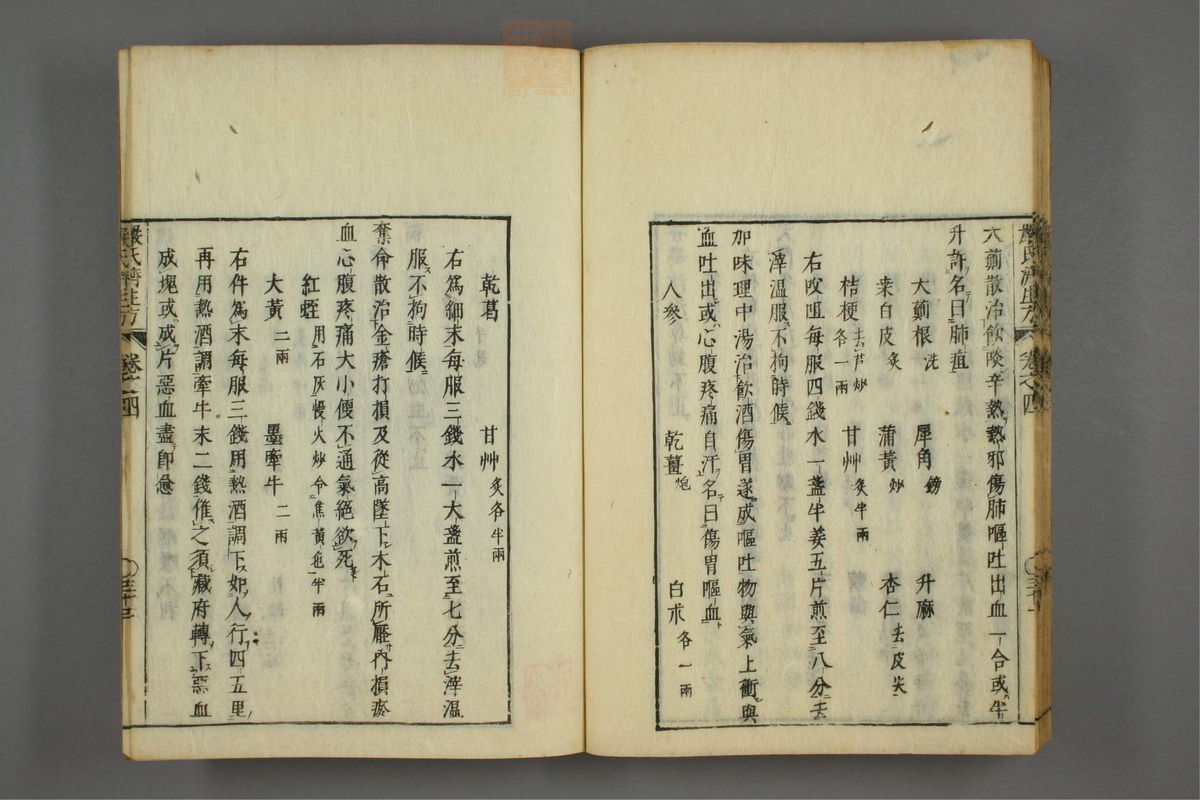 大薊散治飲啖辛熱熱邪傷肺嘔吐出血一合或半
升許名曰肺疽
大薊根洗 犀角鎊 升麻
桑白皮炙 蒲黃炒 杏仁去皮尖
桔梗去芦炒各一兩 甘艸炙半兩
右㕮咀每服四錢水一盞半姜五片煎至八分去
滓溫服不狗時候
加味理中湯治飲酒傷胃遂成嘔吐物與氣上衝與
血吐出或心腹疼痛自汗名曰傷胃嘔血
人參 乾薑炮 白朮各一兩
乾葛 甘艸炙各半兩
右爲細末每服三錢水一大盞煎至七分去滓溫
服不狗時候
奪命散治金瘡打損及從高墜下木石所壓內損瘀
血心腹疼痛大小便不通氣絕欲死
紅蛭用石灰慢火炒令焦黃色半兩
大黃二兩 黑牽牛二兩
右件爲末每服三錢用熱酒調下如人行四五里
再用熱酒調牽牛末二錢催之須藏府轉下惡血
成塊或成片惡血盡即愈
嚴氏濟生方 卷之四